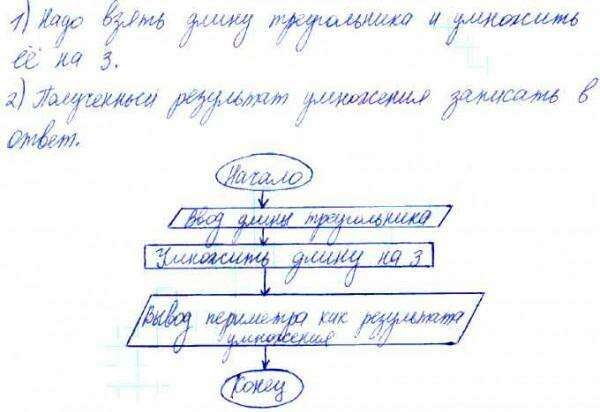 1) Надо взять длину треугольника и умножить
её на 3.
2) Полученный результат умножения записать в
ответ.
Начало
Ввод длины треугольника
Умножить длину на 3
Вывод периметра как результата
умножения
Конец